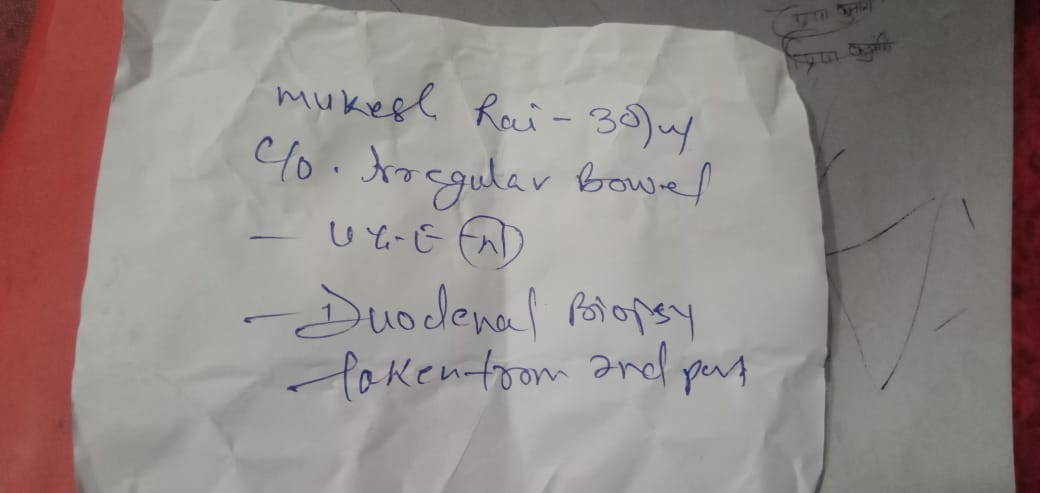 Mukesh Rai - 30/
C/o. Irregular Bowel
- (N)
- Duodenal Biopsy
- taken from 2nd part